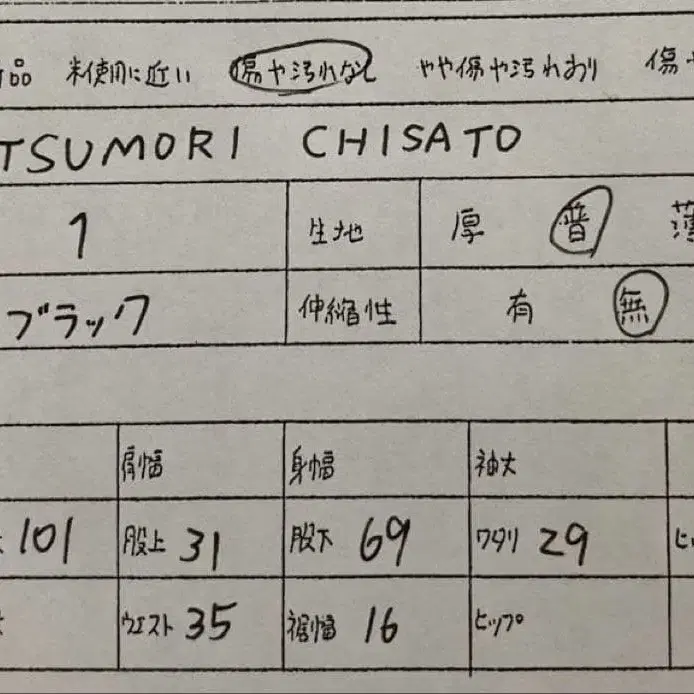 品 未使用に近い 傷や汚れなし やや傷や汚れあり 傷や
TSUMORI CHISATO
1 生地 厚 普 薄
ブラック 伸縮性 有 無
肩幅 身幅 袖丈
101 股上 31 股下 69 ワタリ 29 ヒッ
ウエスト 35 裾幅 16 ヒップ